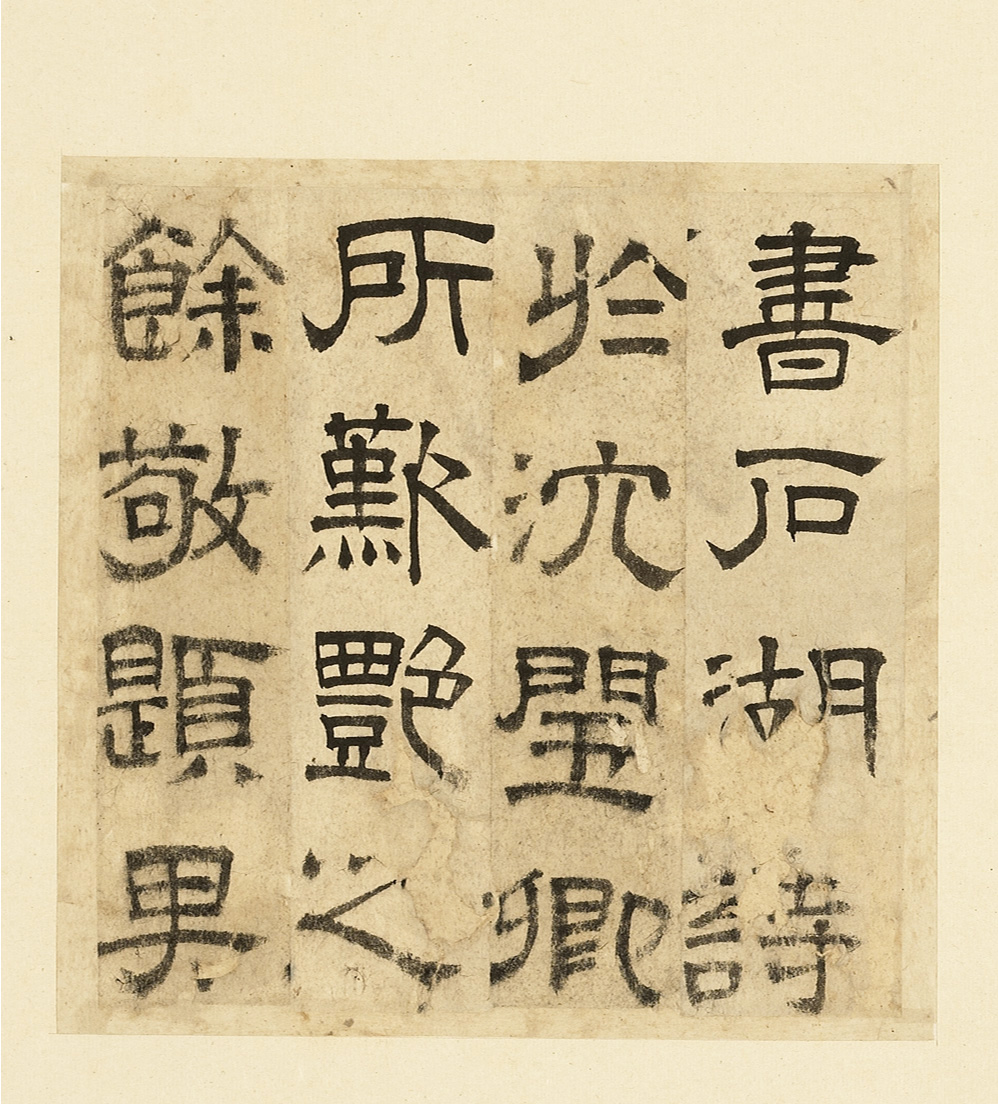 書石湖詩
於沈閏卿
所歎艷之
餘敬題